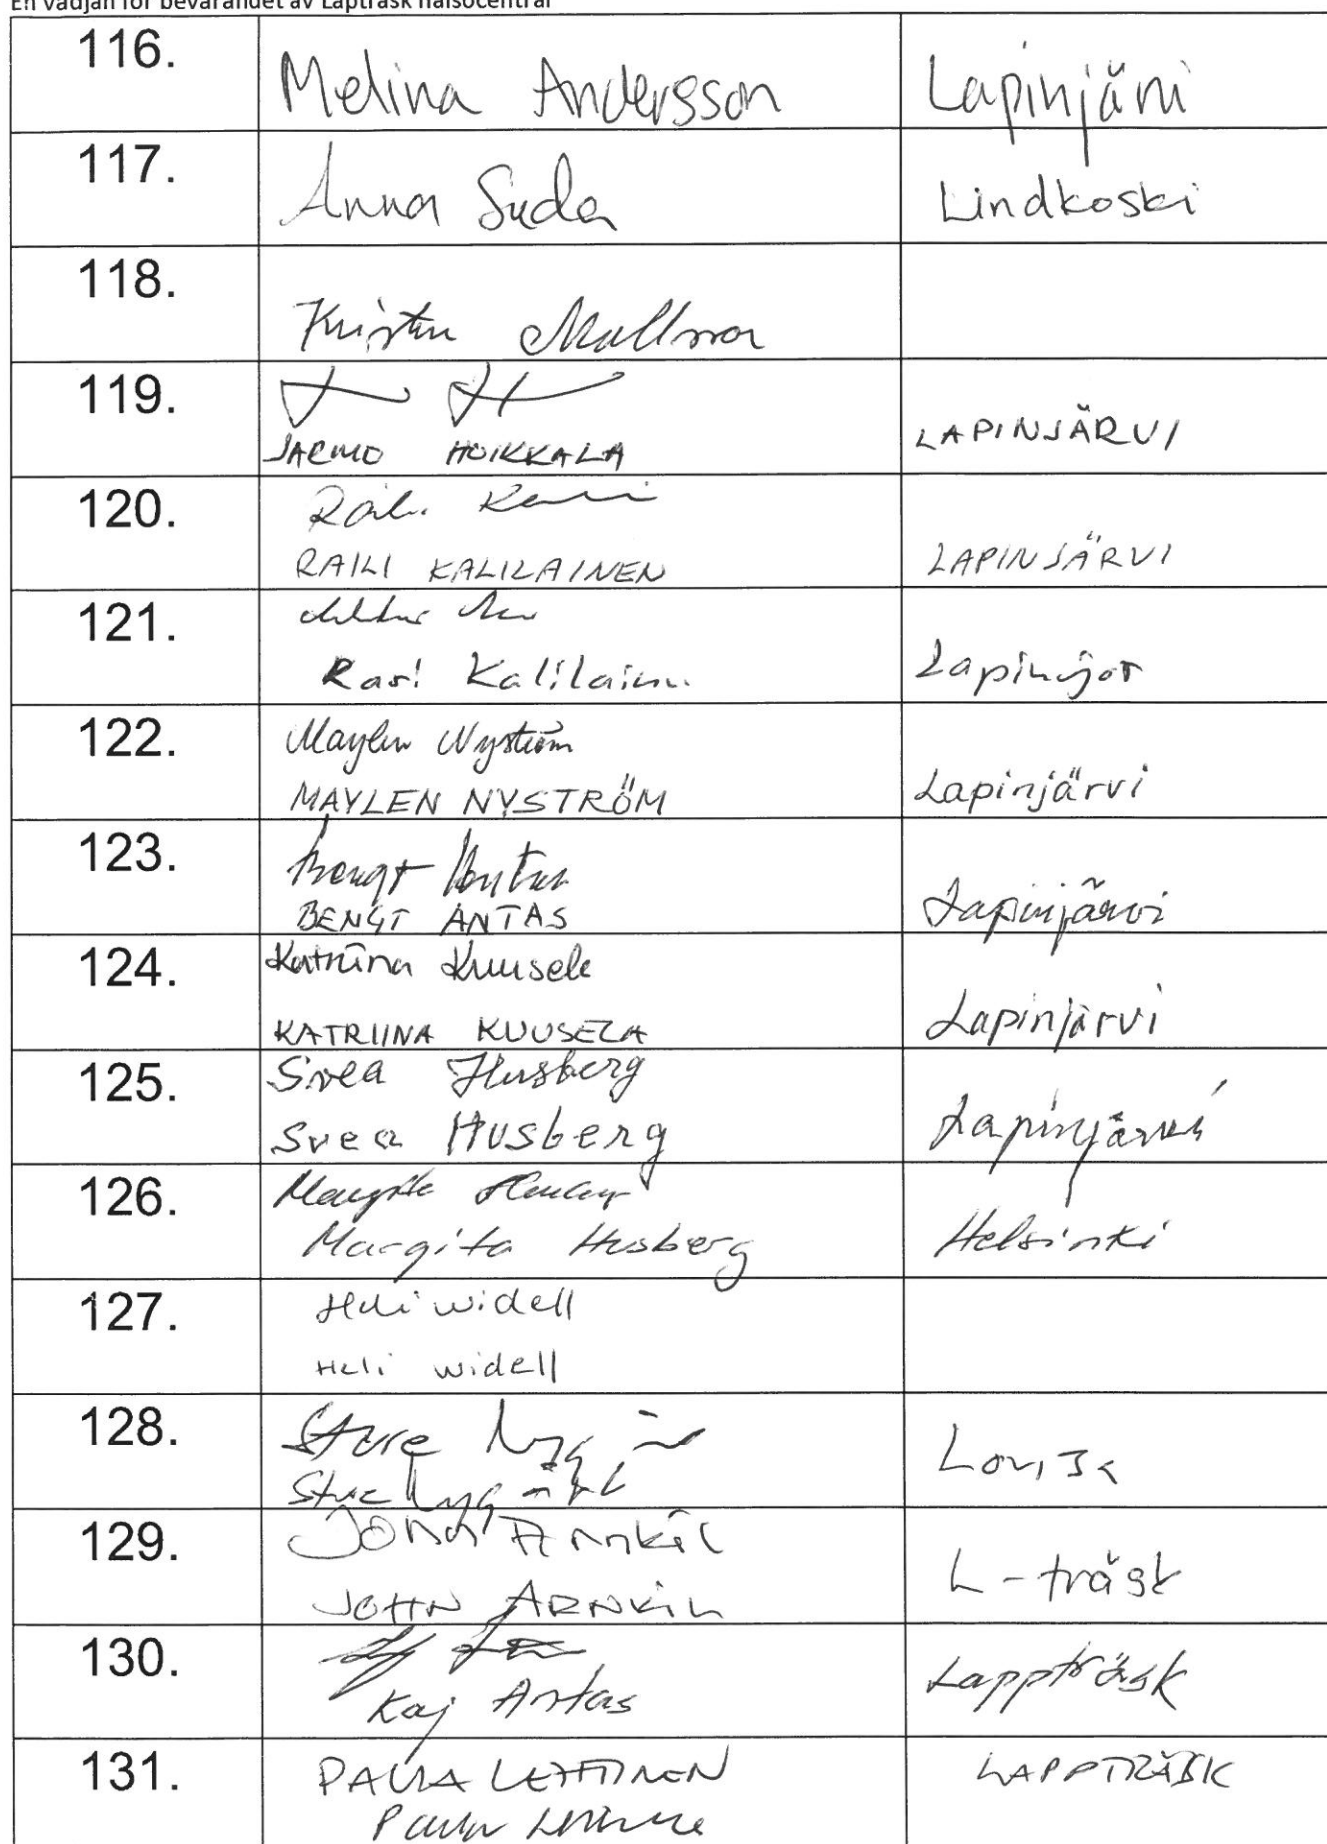 En vädjan för bevarandet av Lapträsk hälsocentral
116. Melina Andersson Lapinjärvi
117. Anna Suda Lindkoski
118.
119.
JARMO HOIKKALA LAPINJÄRVI
120.
RAILI KALILAINEN LAPINJÄRVI
121.
Kalilainen
122. Maylen Nyström
MAYLEN NYSTRÖM Lapinjärvi
123. Bengt Antas
BENGT ANTAS Lapinjärvi
124. Katriina Kuusela
KATRIINA KUUSELA Lapinjärvi
125. Svea Husberg
Svea Husberg Lapinjärvi
126. Margita
Margita Husberg Helsinki
127. Heli Widell
Heli Widell
128. Sture
Sture Lovisa
129. John Arnkil
JOHN ARNKIL L-träsk
130.
Kaj Antas Lappträsk
131. PAULA LEHTINEN LAPPTRÄSK
Paula Lehtinen